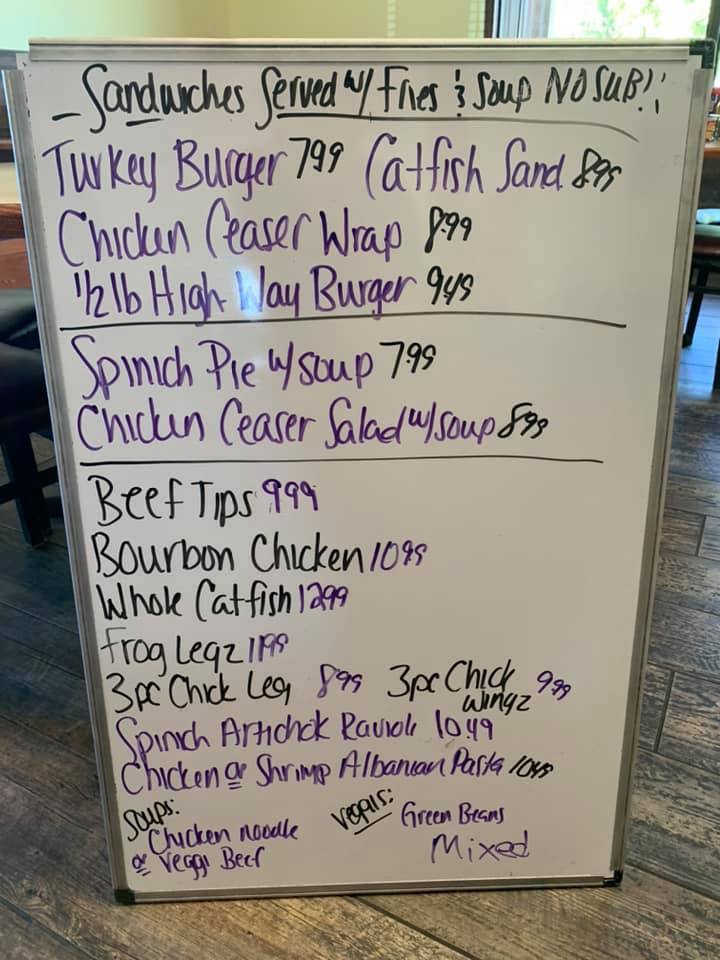 Sandwiches Served w/ Fries & Soup NO SUB!!
Turkey Burger 799 Catfish Sand 899
Chicken Ceaser Wrap 8.99
1/2 lb High Way Burger 949
Spinich Pie w/ soup 7.99
Chicken Ceaser Salad w/ soup 899
Beef Tips 999
Bourbon Chicken 1099
Whole Catfish 1299
Frog Legz 1199
3pc Chick Leg 899 3pc Chick Wingz 999
Spinch Artichok Ravioli 1049
Chicken or Shrimp Albanian Pasta 1049
Soups: Vegals: Green Beans
Chicken noodle Mixed
or Veggi Beef